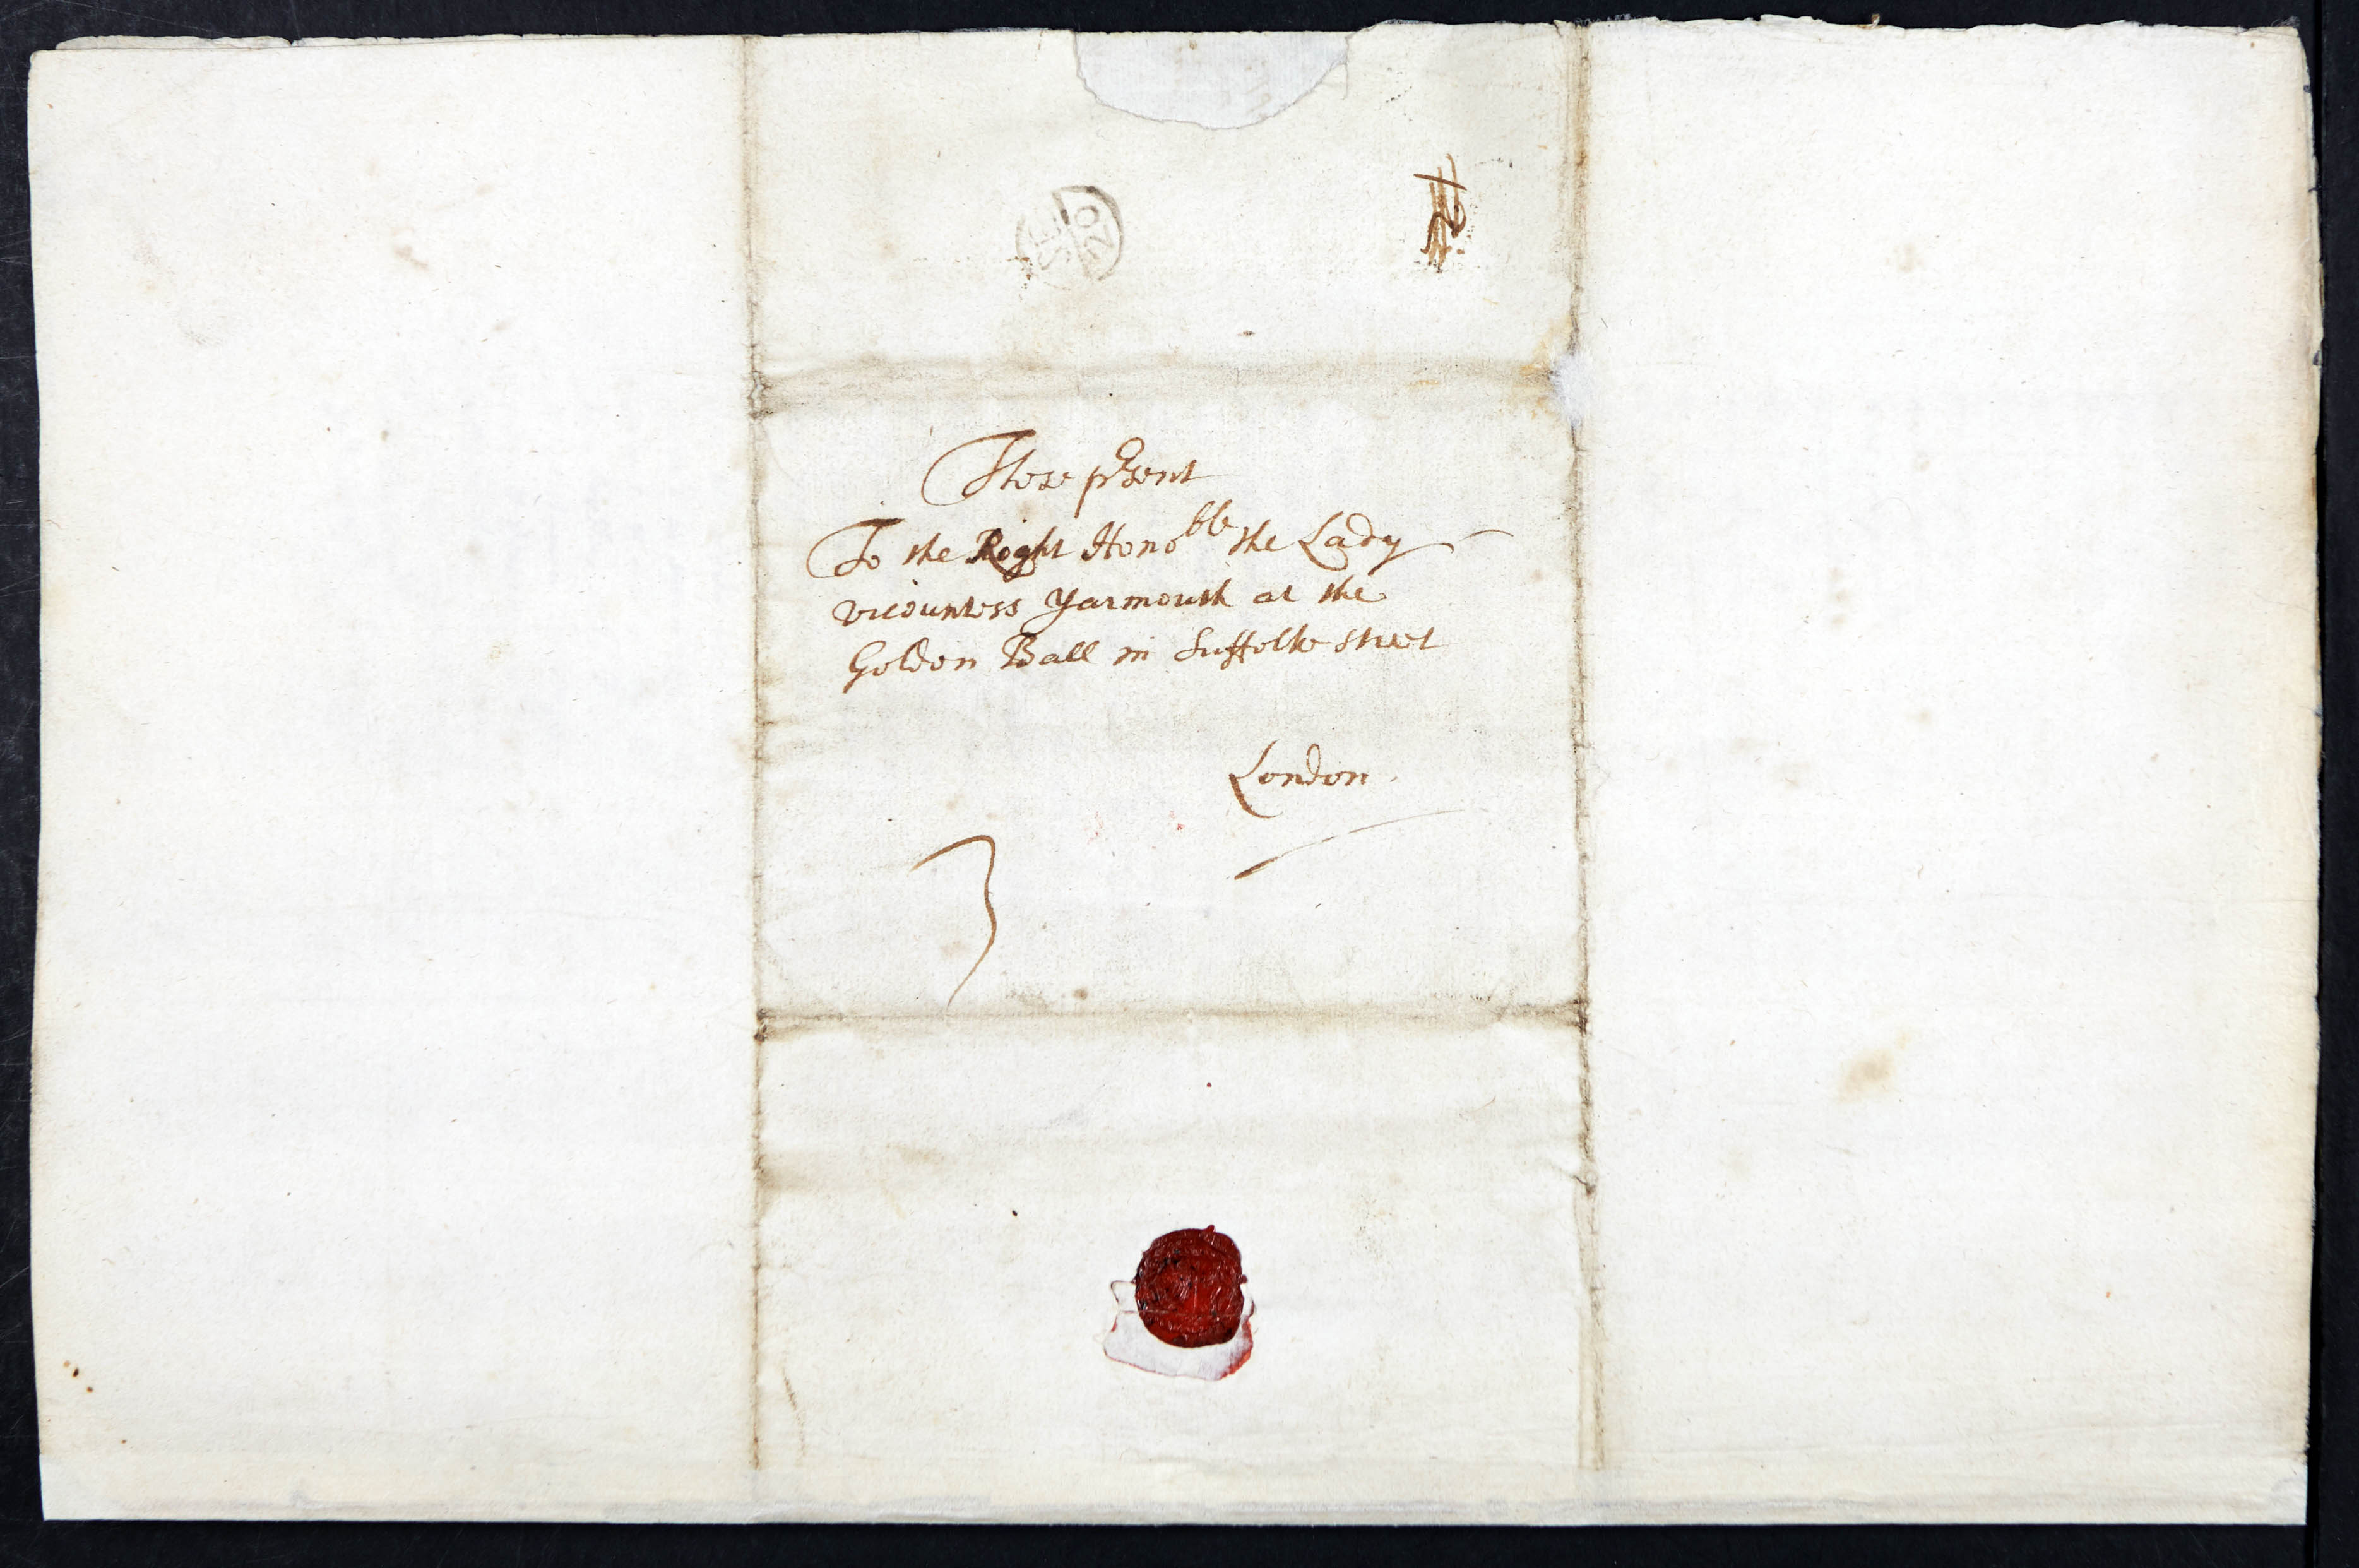 SE
20
These prsent
To the Right Honoble the Lady
vicountess Yarmouth at the
Golden Ball in Suffolke street
London.
3